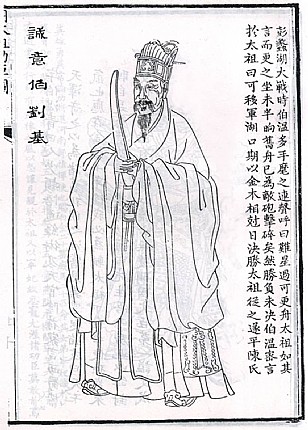 彭蠡湖大戰時伯溫多手麾之連聲呼曰難星過可更舟太祖如其
言而更之坐未半晌舊舟已為敵砲擊碎矣然勝負未決伯溫密言
於太祖曰可移軍湖口期以金木相尅日決勝太祖從之遂平陳氏
誠意伯劉基